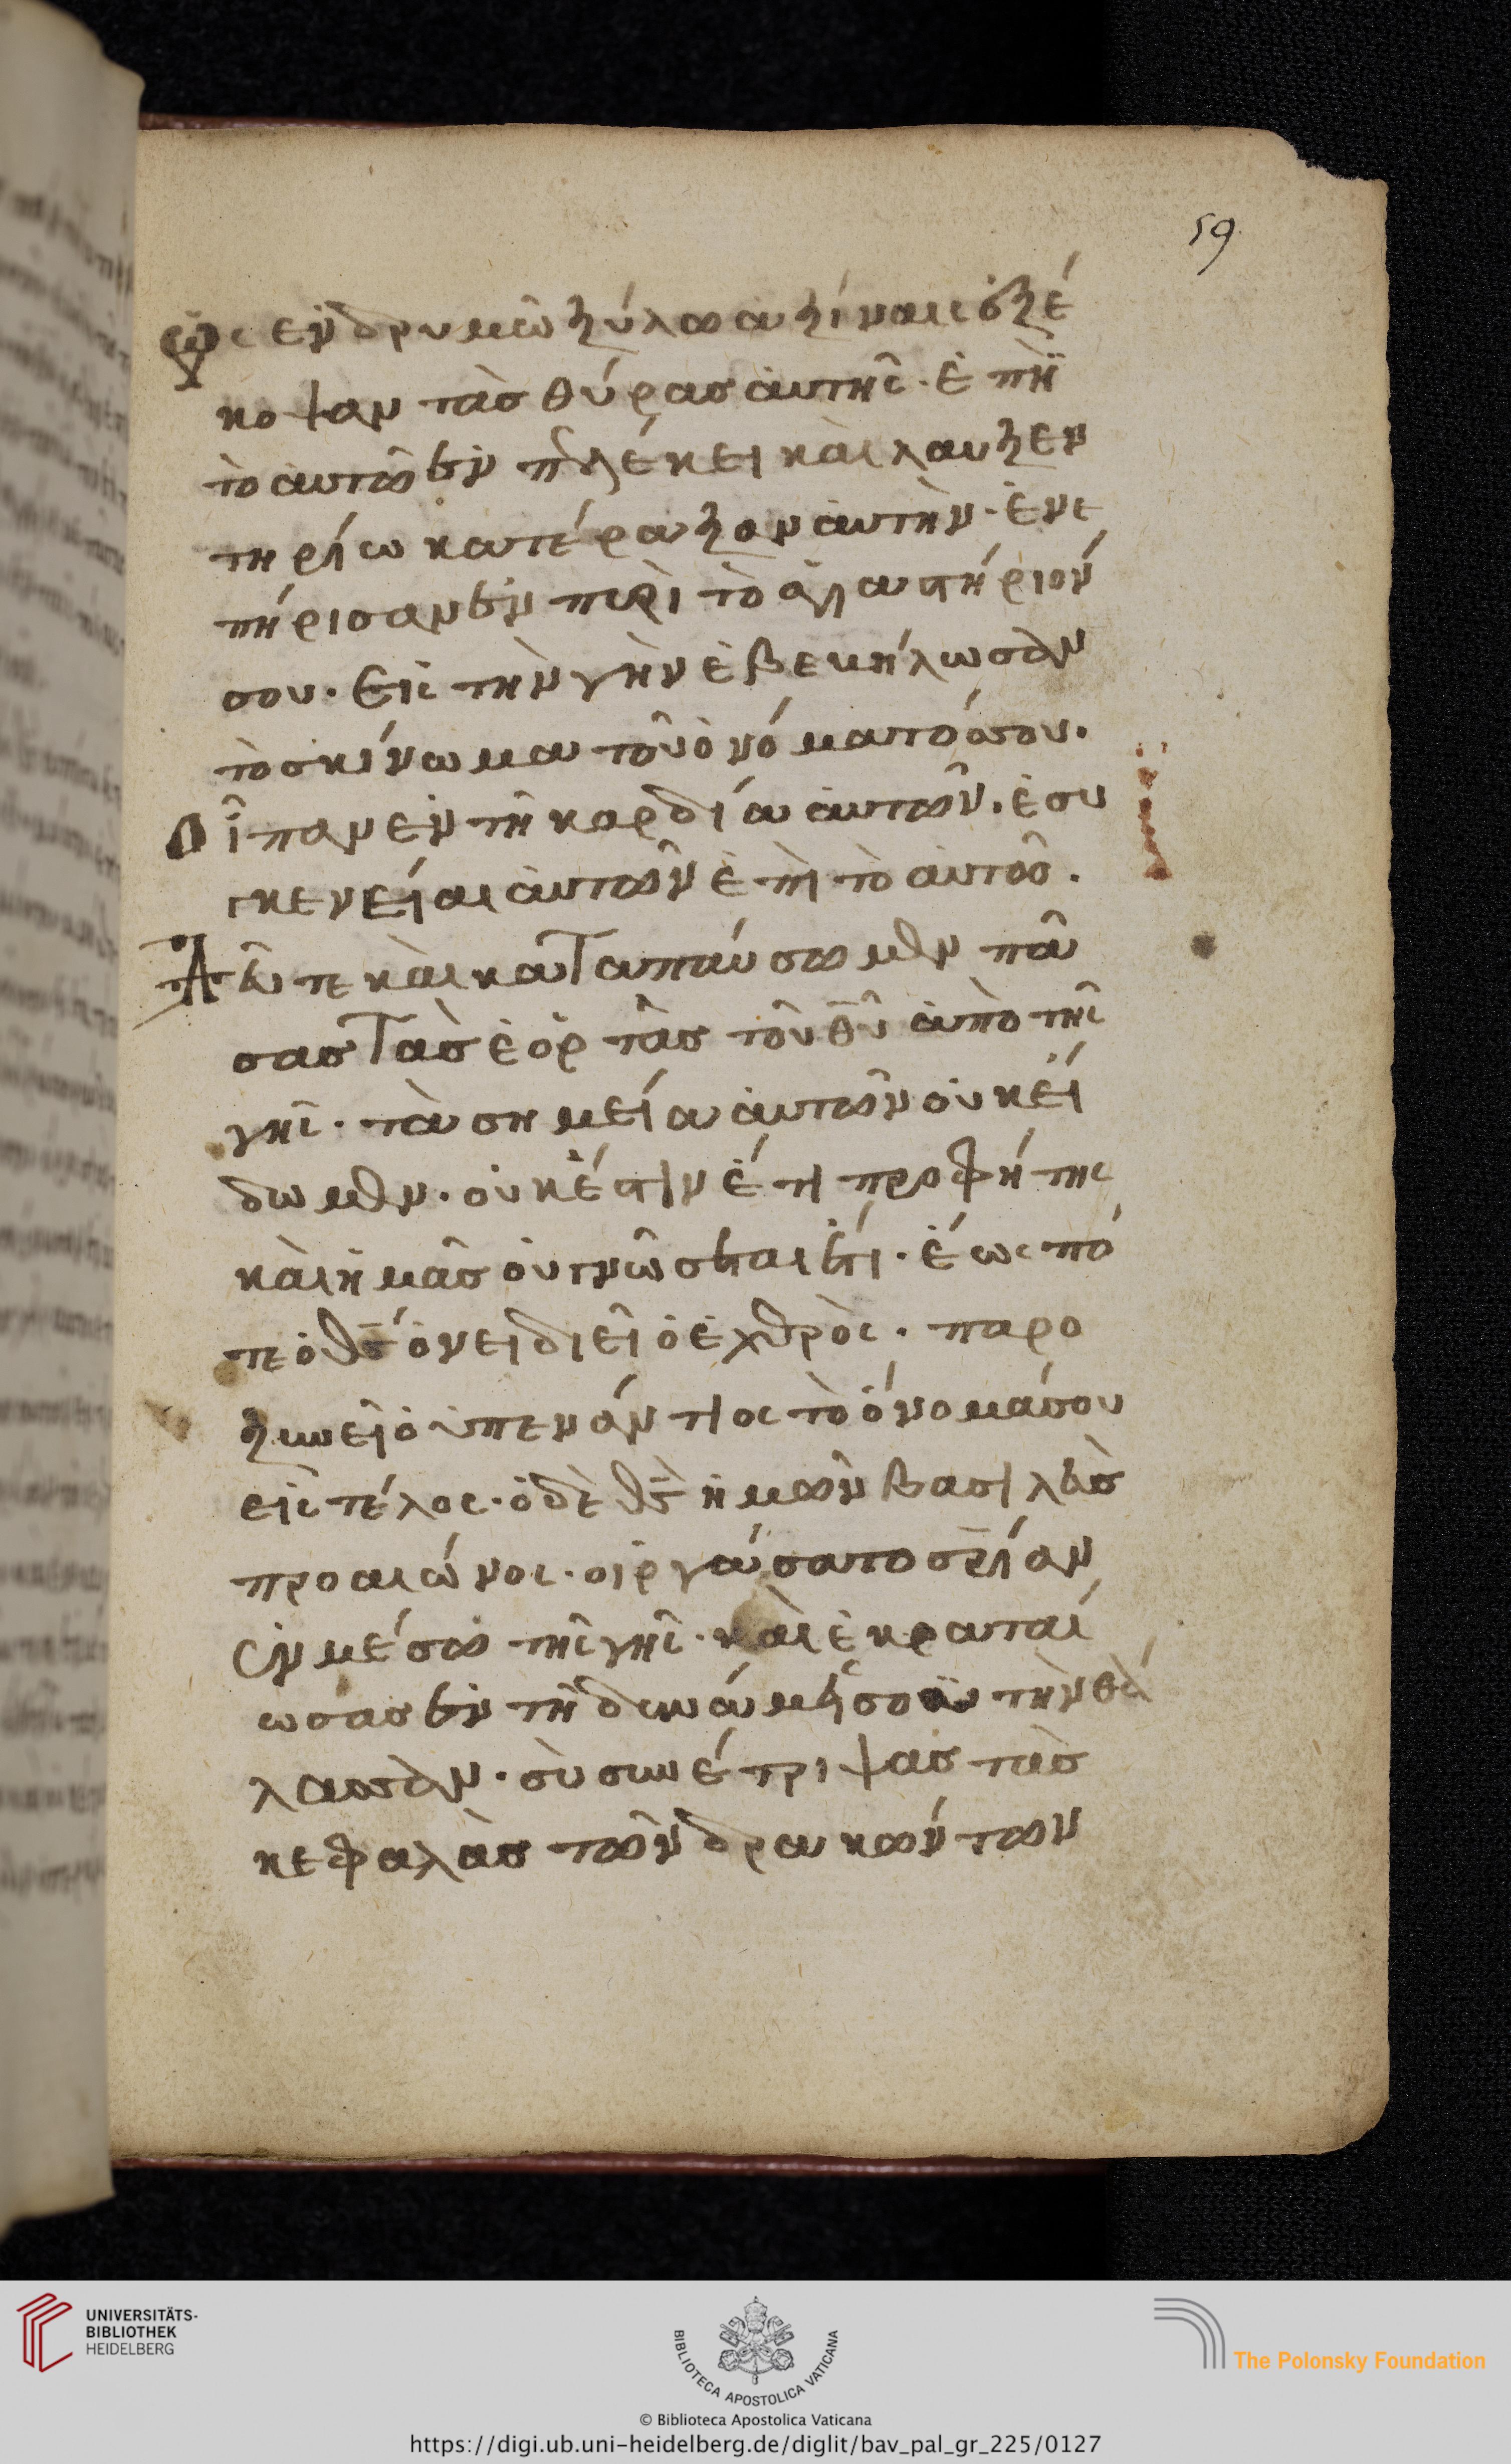 59
ὡς ἐν δρυμῶ ξύλω ἀξίναις ἐξέ
κοψαν τὰσ θύρασ ἀυτῆς· ἐπῒ
τὸ ἀυτῶ ἐν πελέκει κὰι λαυξευ
τηρίω κατέραξαν ἀυτὴν· ἐνε
πύρισαν ἐν πυρὶ τὸ ἁγιαστήριόν
σου· Εἰς τὴν γὴν ἐβεκήλωσαν
τὸ σκίνωμα τοῦ ὀνόματόσ σου·
Ὀῖπαν ἐν τῆ καρδία ἀυτῶν· ἡ συ
γκενεία ἀυτῶν ἐπὶ τὸ ἀυτῶ.
Δεῦτε κὰι καταπαύσωμεν πά
σασ τὰσ ἑορτὰσ τοῦ θῦ ἀπὸ τῆς
γῆς· τὰ σημεία ἀυτῶν οὐκ εί
δωμεν· οὐκ έστιν έτι προφήτης
κὰι ἡμᾶσ οὐ γνῶσεται έτι· έως πό
τε ὁ θς ὀνειδιεῖ ὁ ἐχθρὸς· παρο
ξυνεῖ ὁ ὑπενάντιος τὸ ὄνομά σου
εἰς τέλος· ὁ δὲ θς ἡμῶν βασιλεὺσ
προ αιώνος· οιργάσατο σρίαν
ἐν μέσω τῆς γῆς· κὰι ἐκραταί
ωσασ ἐν τῆ δυνάμει σου τὴν θά
λασσαν· σὺ συνέτριψασ τὰσ
κεφαλὰσ τῶν δρακώντων
UNIVERSITÄTS-
BIBLIOTHEK
HEIDELBERG
BIBLIOTECA APOSTOLICA VATICANA
The Polonsky Foundation
© Biblioteca Apostolica Vaticana
https://digi.ub.uni-heidelberg.de/diglit/bav_pal_gr_225/0127